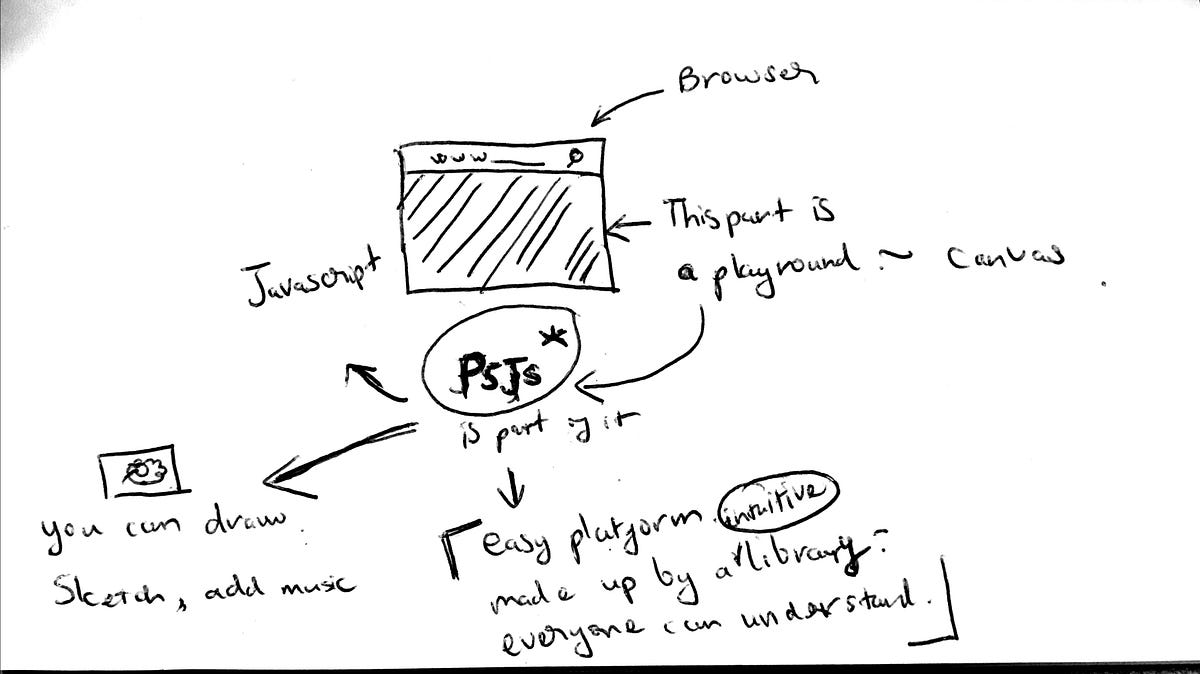 Browser
www
This part is
a playground :~ canvas
Javascript
P5Js *
is part of it
you can draw.
Sketch, add music
easy platform. intuitive
made up by a library:
everyone can understand.